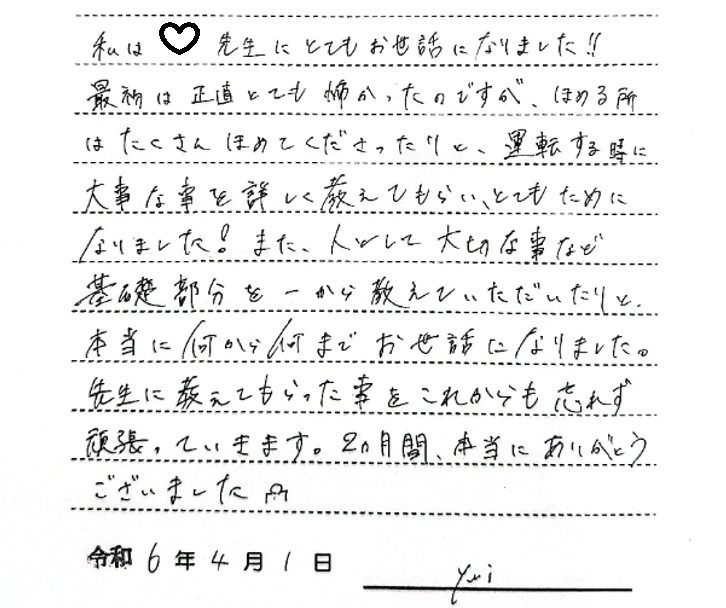 私は♡先生にとてもお世話になりました!!
最初は正直とても怖かったのですが、ほめる所
はたくさんほめてくださったりと、運転する時に
大事な事を詳しく教えてもらい、とてもために
なりました!また、人として大切な事など
基礎部分を一から教えていただいたりと、
本当に何から何までお世話になりました。
先生に教えてもらった事をこれからも忘れず
頑張っていきます。2ヵ月間、本当にありがとう
ございました
令和6年4月1日
yui